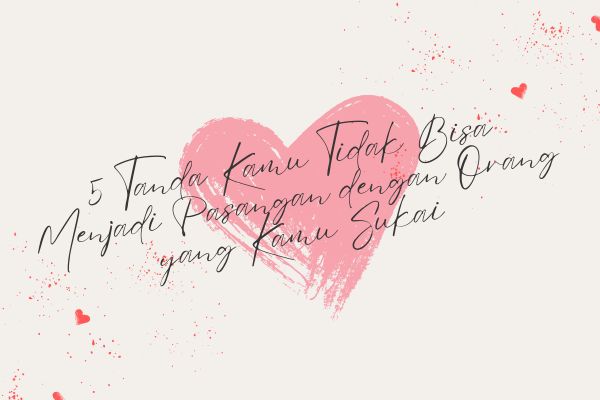 5 Tanda Kamu Tidak Bisa
Menjadi Pasangan dengan Orang
yang Kamu Sukai